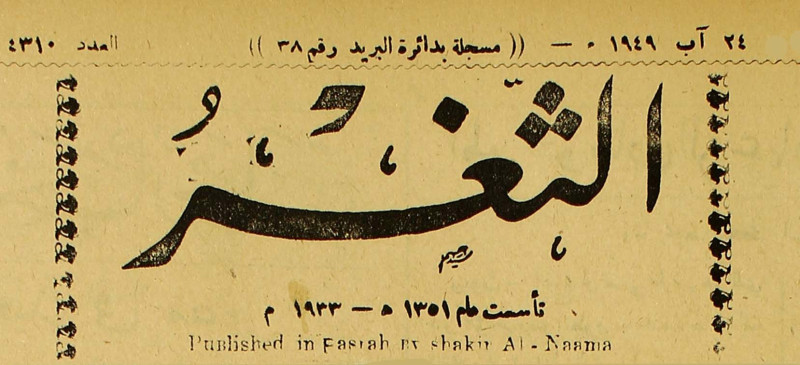 ٢٤ آب ١٩٤٩ م — (( مسجلة بدائرة البريد رقم ٣٨ )) العدد ٤٣١٠
الثَّغْرُ
تأسست عام ١٣٥١ ه — ١٩٣٣ م
Published in Basrah By shakir Al - Naama